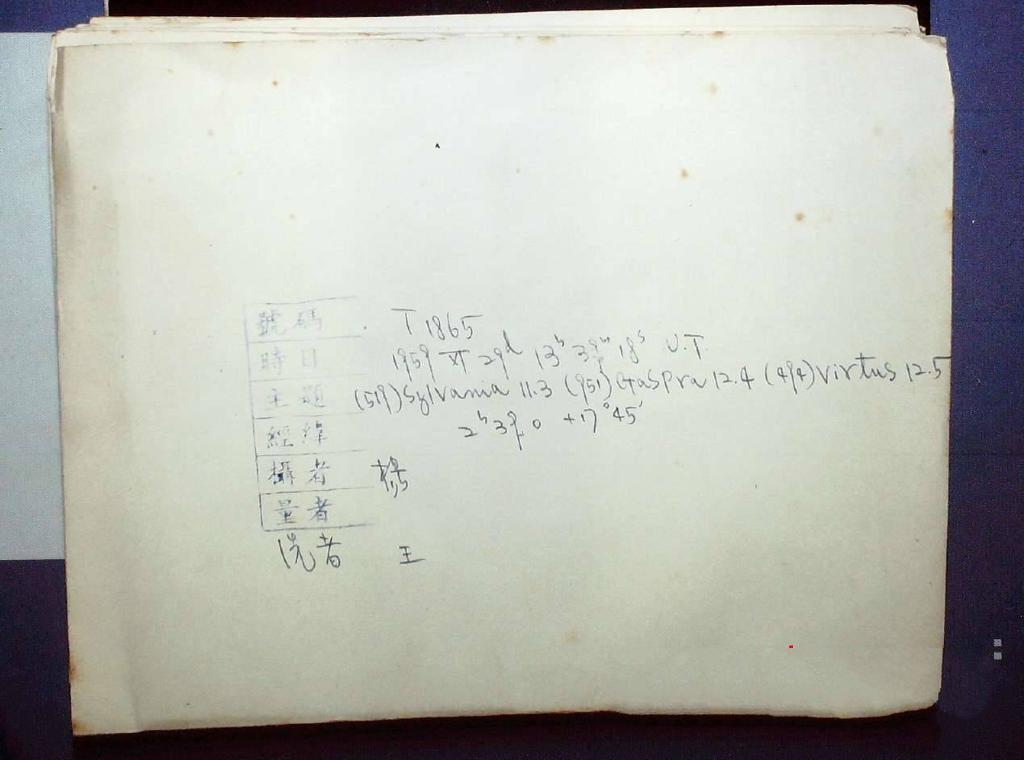 號碼 T 1865
時日 1959 XI 29d 13h 39m 18s U.T.
主題 (519) Sylvania 11.3 (951) Gaspra 12.4 (494) Virtus 12.5
經緯 2h 39.0 +17°45'
攝者 楊
量者
洗者 王